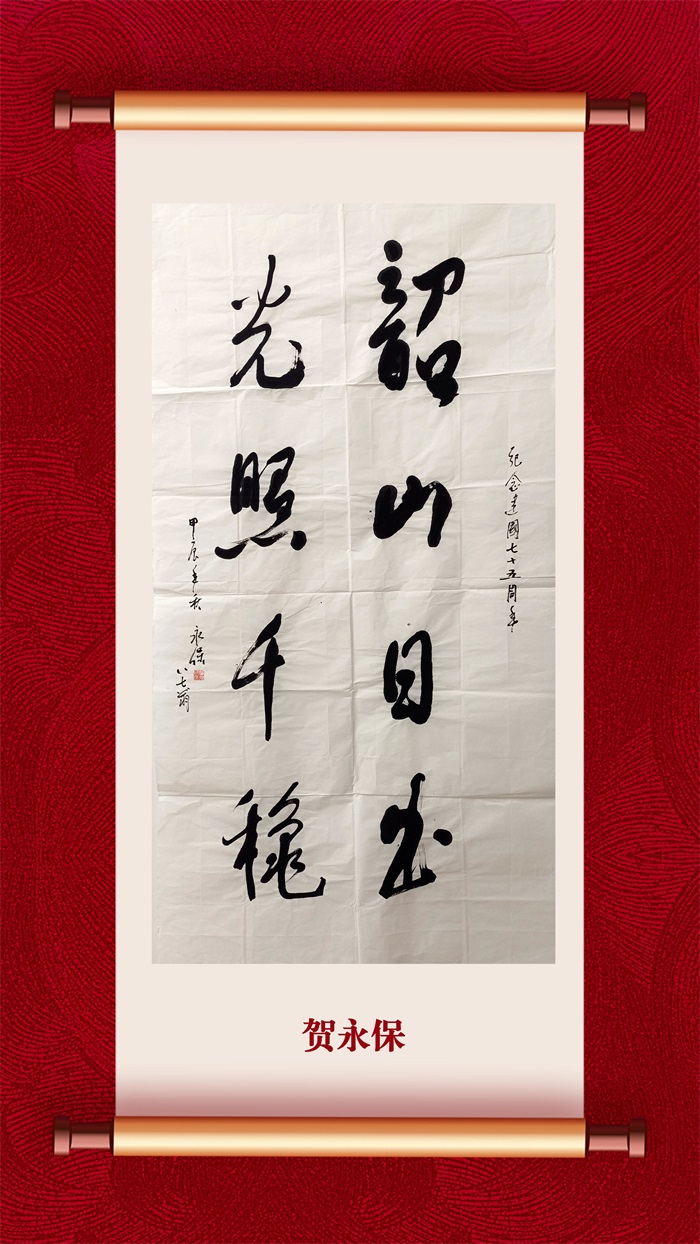 纪念建國七十五周年
韶山日出
光照千秋
甲辰年秋 永保
八七翁
贺永保